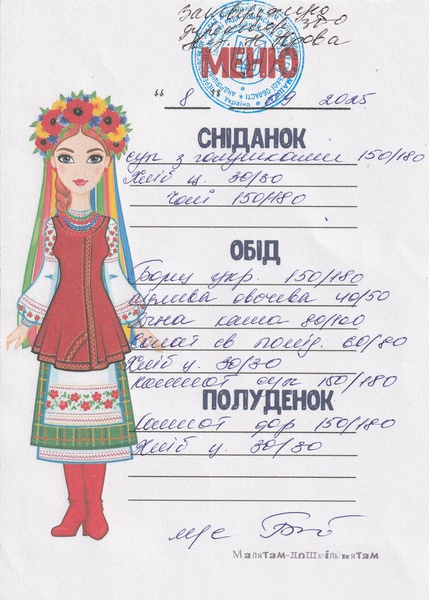 Затверджено
директор ЗДО
МЕНЮ
" 8 " 09 2025
СНІДАНОК
суп з галушками 150/180
Хліб ц. 30/30
Чай 150/180
ОБІД
Борщ укр. 150/180
підлива овочева 40/50
каша 80/100
Салат св помід. 60/80
Хліб ц. 30/30
компот сух 150/180
ПОЛУДЕНОК
150/180
Хліб ц. 30/30
м/с
Малятам-дошкільнятам